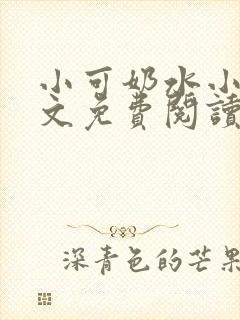 小可奶水小
文免費閱讀
深青色的芒果